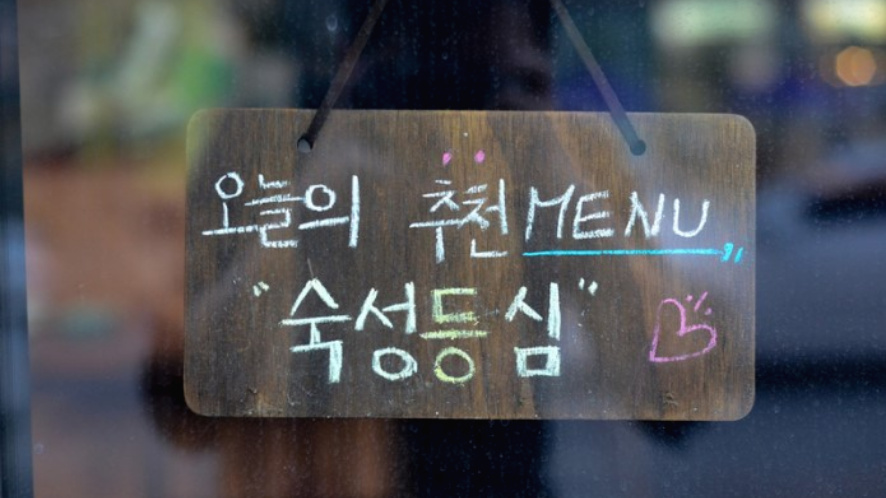 오늘의 추천 MENU
"숙성등심"